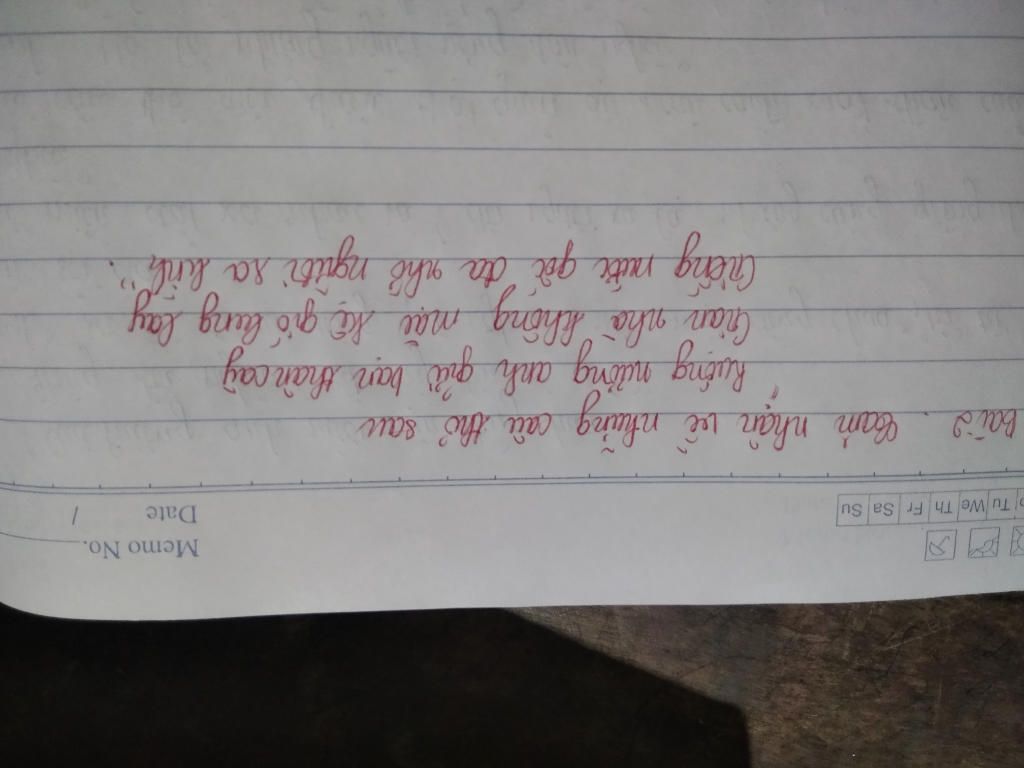 Memo No.
Date /
Tu We Th Fr Sa Su
Bài 2. Cảm nhận về những câu thơ sau
"Ruộng nương anh gửi bạn thân cày
Gian nhà không mặc kệ gió lung lay
Giếng nước gốc đa nhớ người ra lính".